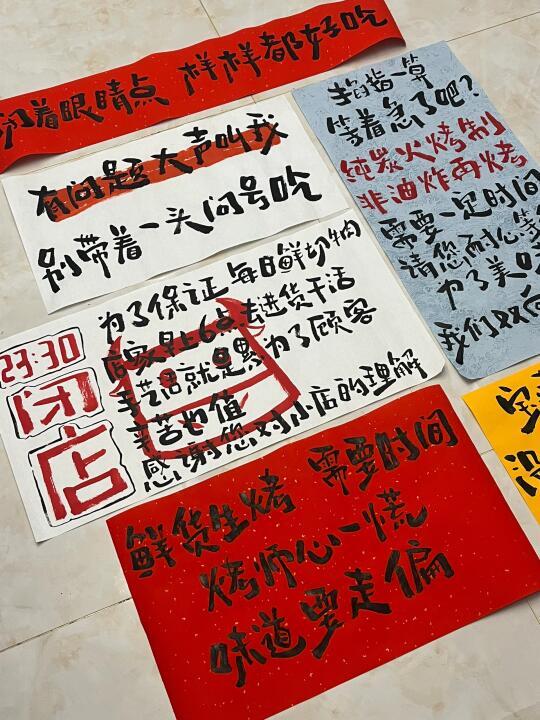 闭着眼睛点 样样都好吃
有问题大声叫我
别带着一头问号吃
掐指一算
等着急了吧?
纯炭火烤制
非油炸再烤
需要一定时间
请您耐心等
为了美味
我们双向
23:30
闭店
为了保证每日鲜切牛肉
店家早上6点去进货干活
手艺活就是累为了顾客
辛苦也值
感谢您对小店的理解
鲜货生烤 需要时间
烤师心一慌
味道要走偏